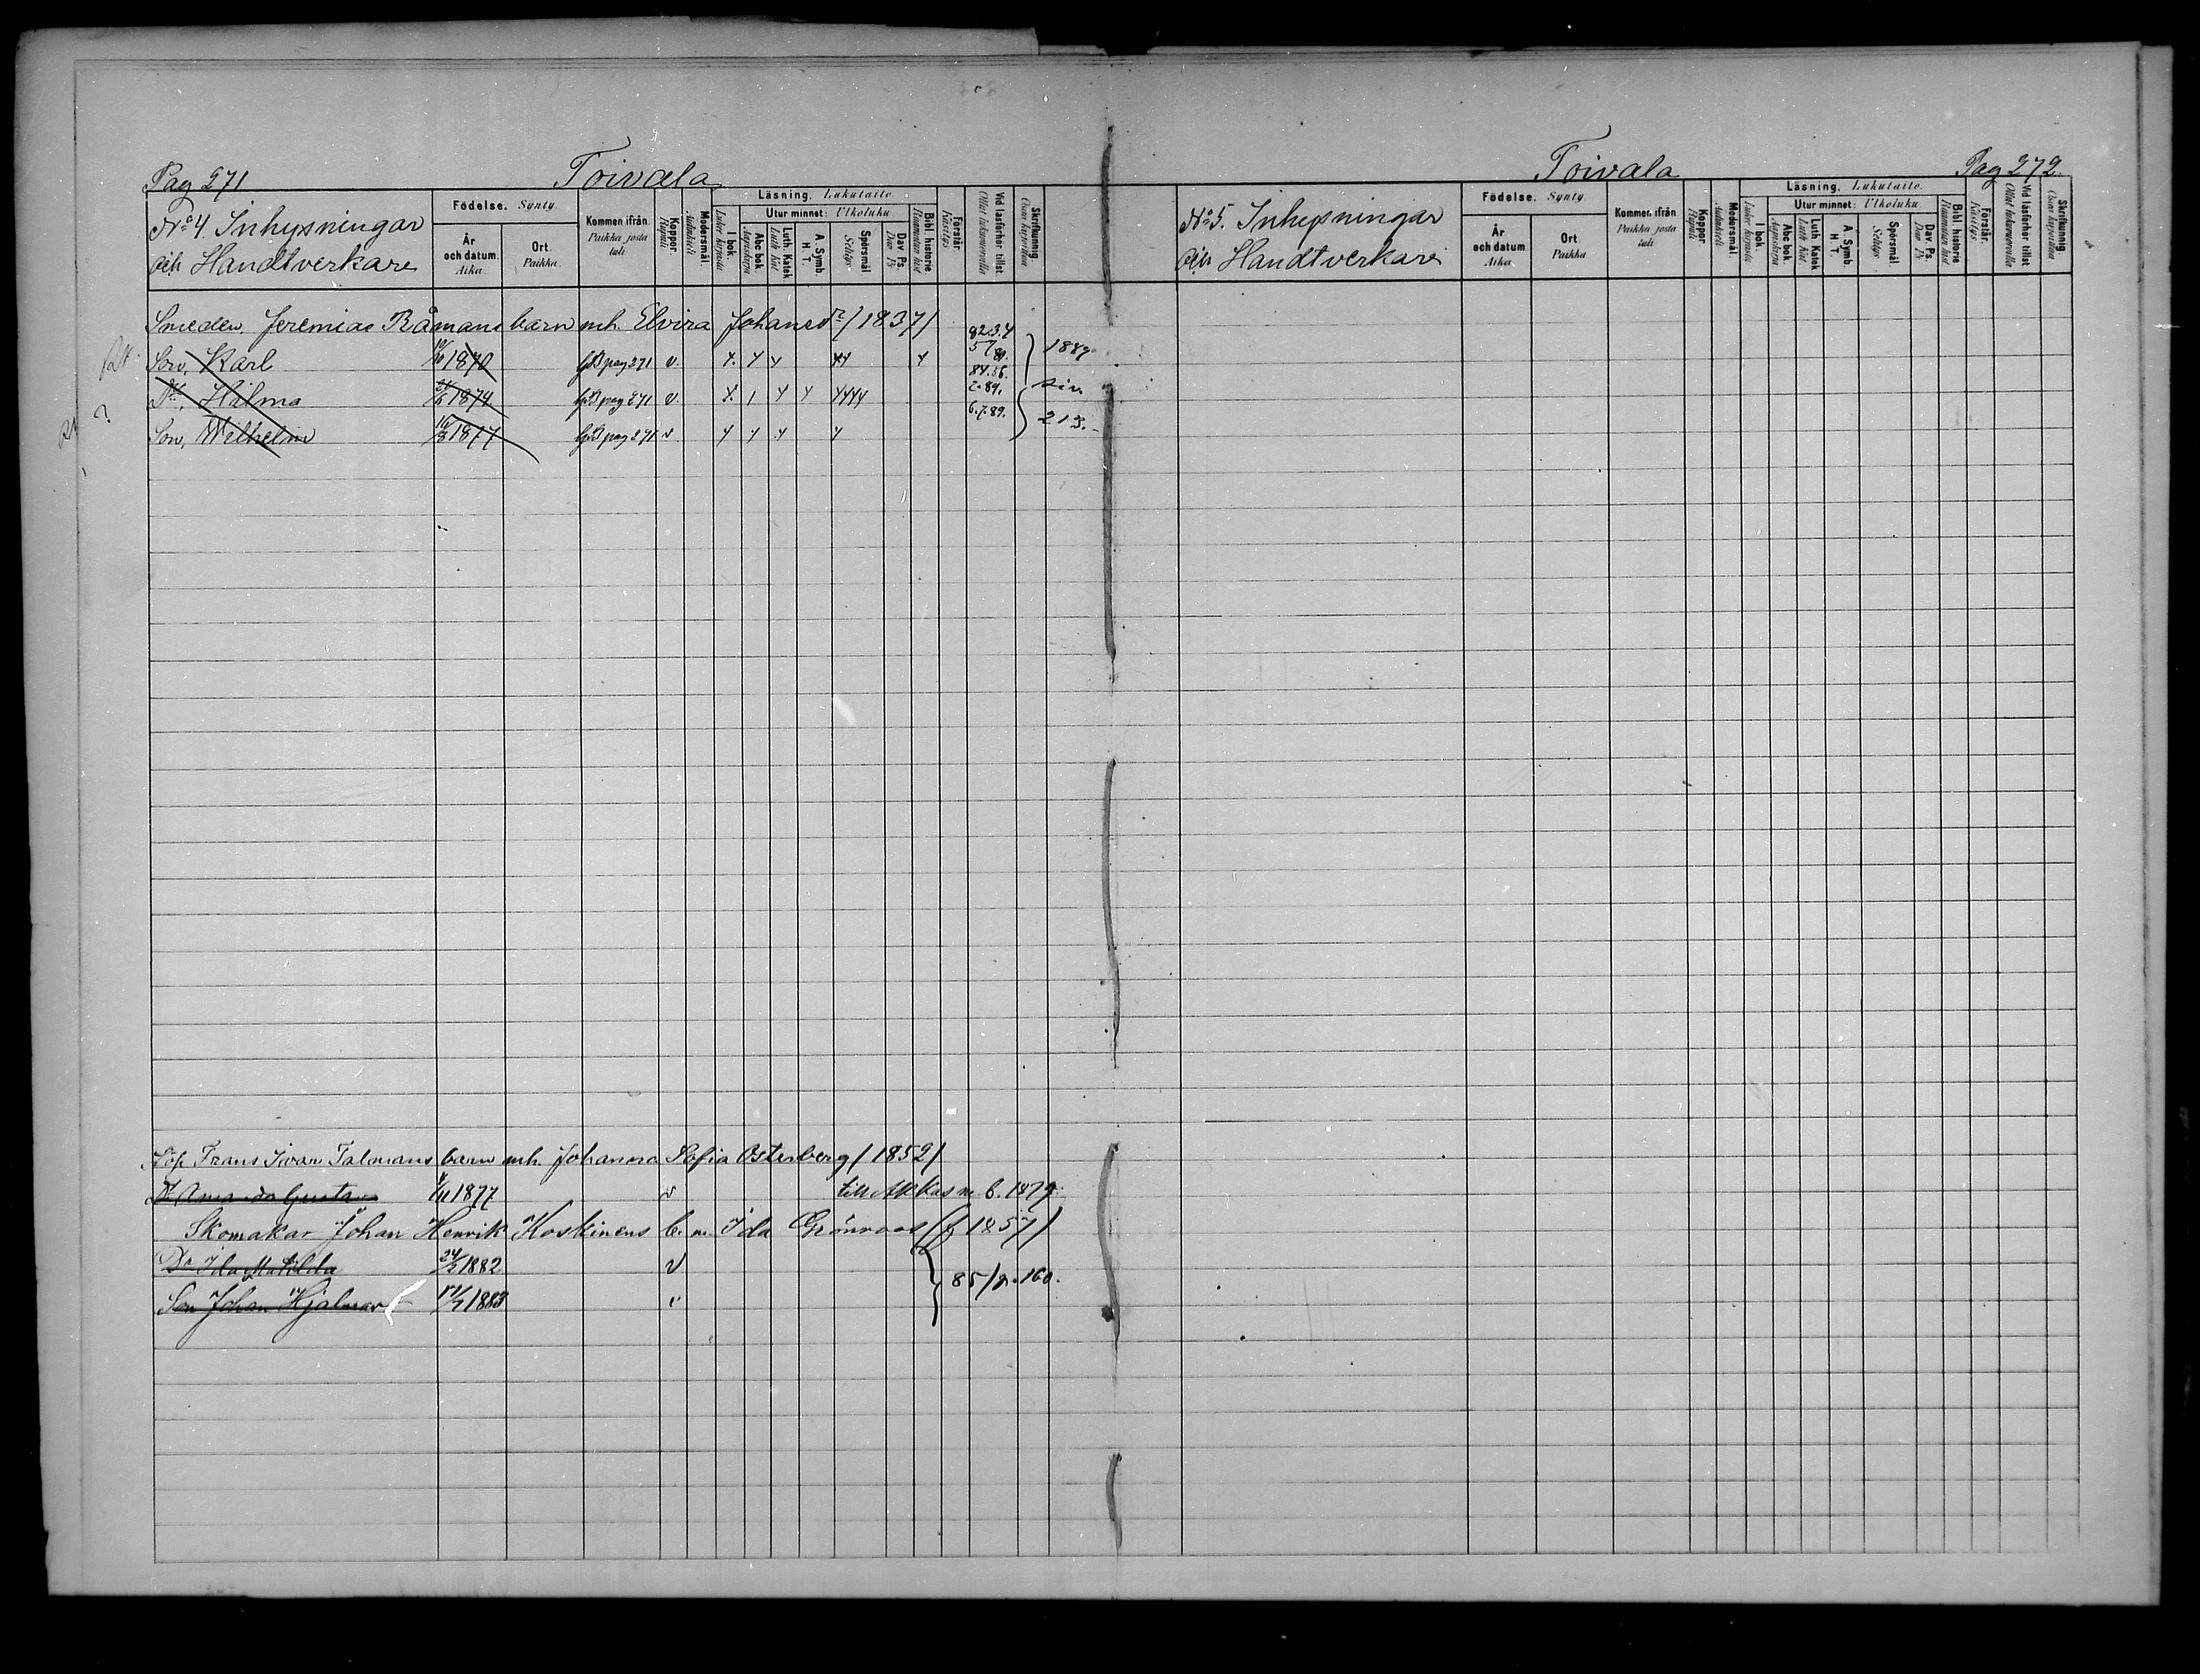 Pag 271 Toivala
Nº 4. Inhysningar
och Handtverkare
Födelse. Synty.
År och datum. Aika.
Ort. Paikka
Kommen ifrån. Paikka josta tuli
Koppor. Rupuli
Modersmål. Äidinkieli
Läsning. Lukutaito.
I bok. Lukee kirjasta
Utur minnet: Ulkoluku.
Abc bok. Aapiskirja
Luth. Katek. Luth Kat
A. Symb. H. T.
Spörsmål Selitys
Dav. Ps. Dav Ps
Bibl. historie Raamatun hist
Förstår. Käsitys.
Vid läsförhör tillst Ollut lukuvuoroilla
Skrifkunnig. Osaa kirjoittaa
Smeden. Jeremias Råmans barn mh. Elvira Johansdr / 1837/
Son, Karl 1870 GB pag 271 v. 82.3.4 1889
Dr. Hilma 1874 GB pag 271 v. 84.56.
Son, Wilhelm 16/8 1877 GB pag 271 v 6.7.89. 213.
Frans Ivar Talmans barn mh. Johanna Sofia Österberg / 1852/
Dr Amanda Gustava 1877 v till Akkas m b. 1879
Skomakar Johan Henrik Koskinens b. m. Ida Grönroos (f 1857)
Dr Ida Matilda 24/2 1882 v
Son Johan Hjalmar 1883 v 85/p. 160.
Toivala Pag 272.
Nº 5. Inhysningar
och Handtverkare
Födelse. Synty
År och datum Aika.
Ort. Paikka
Kommen ifrån. Paikka josta tuli
Koppor Rupuli
Modersmål. Äidinkieli
Läsning. Lukutaito.
I bok Lukee kirjasta
Utur minnet: Ulkoluku.
Abc bok. Aapiskirja
Luth. Katek Luth Kat
A. Symb. H. T.
Spörsmål Selitys
Dav. Ps. Dav Ps
Bibl. historie Raamatun hist
Förstår. Käsitys
Vid läsförhör tillst Ollut lukuvuoroilla
Skrifkunnig. Osaa kirjoittaa